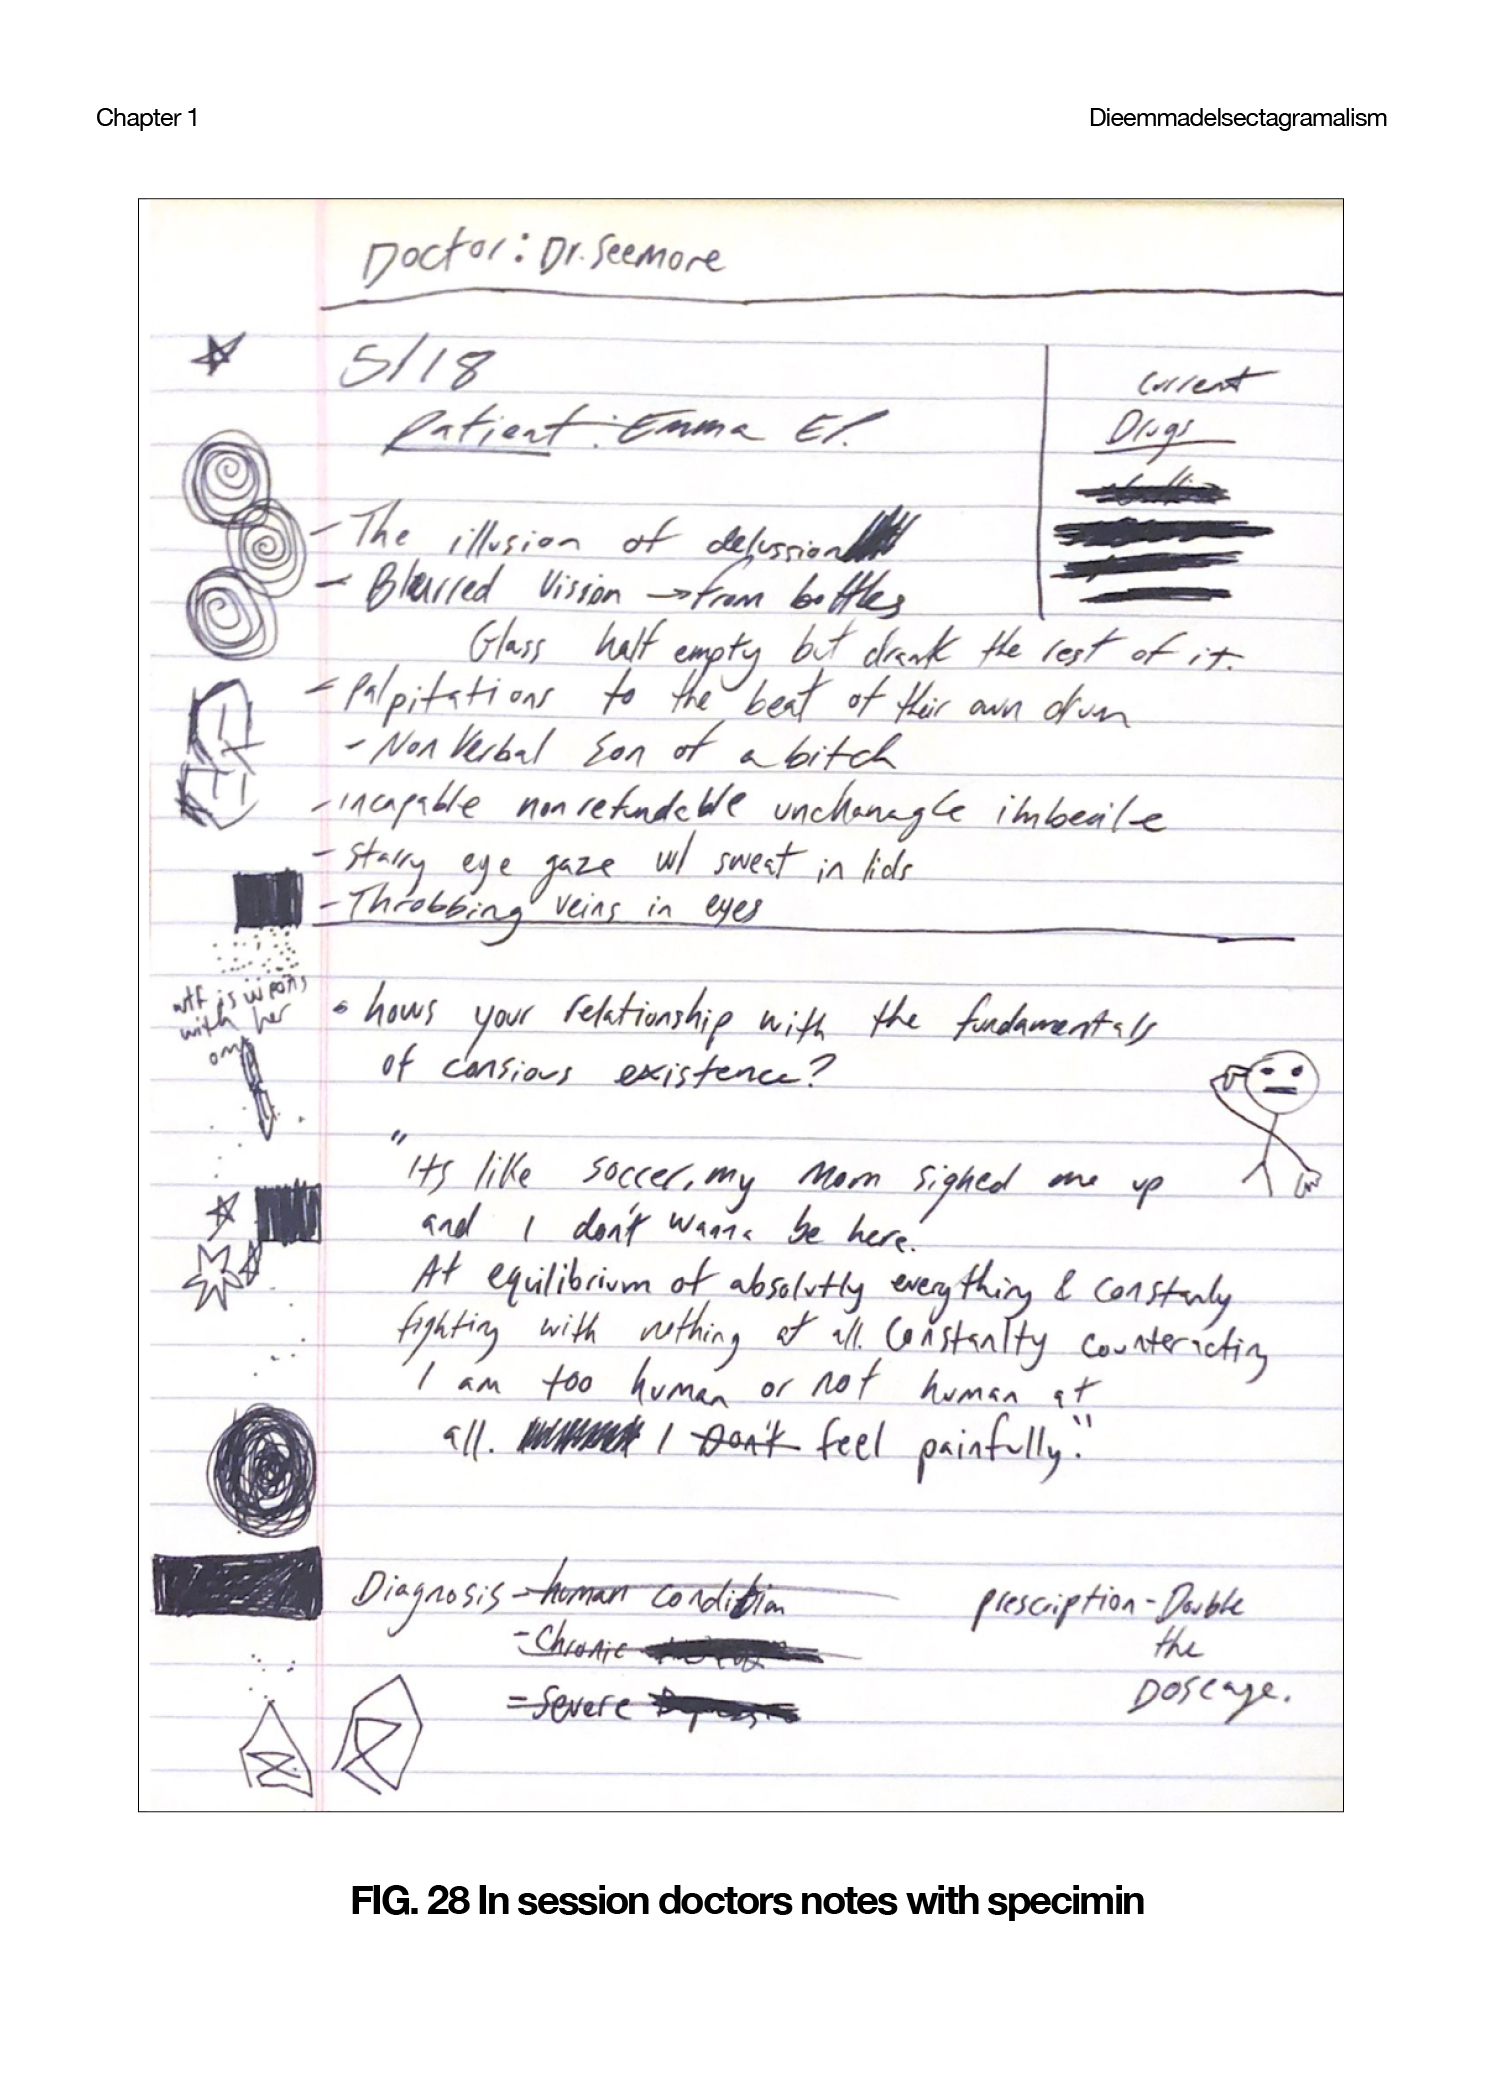 Chapter 1
Dieemmadelsectagramalism
Doctor: Dr. Seemore
5/18
Patient: Emma El.
Current
Drugs
- The illusion of delussion
- Blurred Vission → from bottles
Glass half empty but drank the rest of it.
- Palpitations to the beat of their own drum
- Non Verbal Son of a bitch
- incapable nonrefundable unchanagle imbecile
- starry eye gaze w/ sweat in lids
- Throbbing veins in eyes
wtf is wrong
with her
omg
• hows your relationship with the fundamentals
of consious existence?
"Its like soccer, my Mom signed me up
and I don't wanna be here.
At equilibrium of absolutly everything & constanly
fighting with nothing at all. Constanlty counteracting
I am too human or not human at
all. I Don't feel painfully."
Diagnosis - human condition
- Chronic
- Severe
prescription - Double
the
Doseage.
FIG. 28 In session doctors notes with specimin